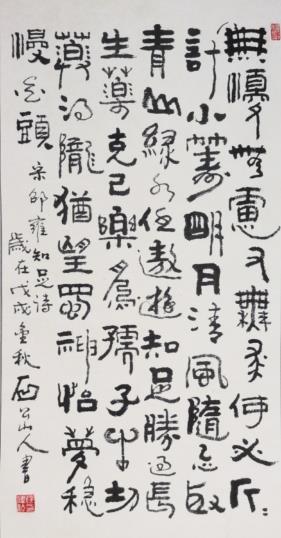 無煩無慮又無求何必斤=
計小籌明月清風隨意取
青山綠水任遨遊知足勝過長
生藥克己樂為孺子牛切
莫得隴猶望蜀神怡夢穩
慢白頭 宋邵雍知足诗
歲在戊戌金秋 山人書